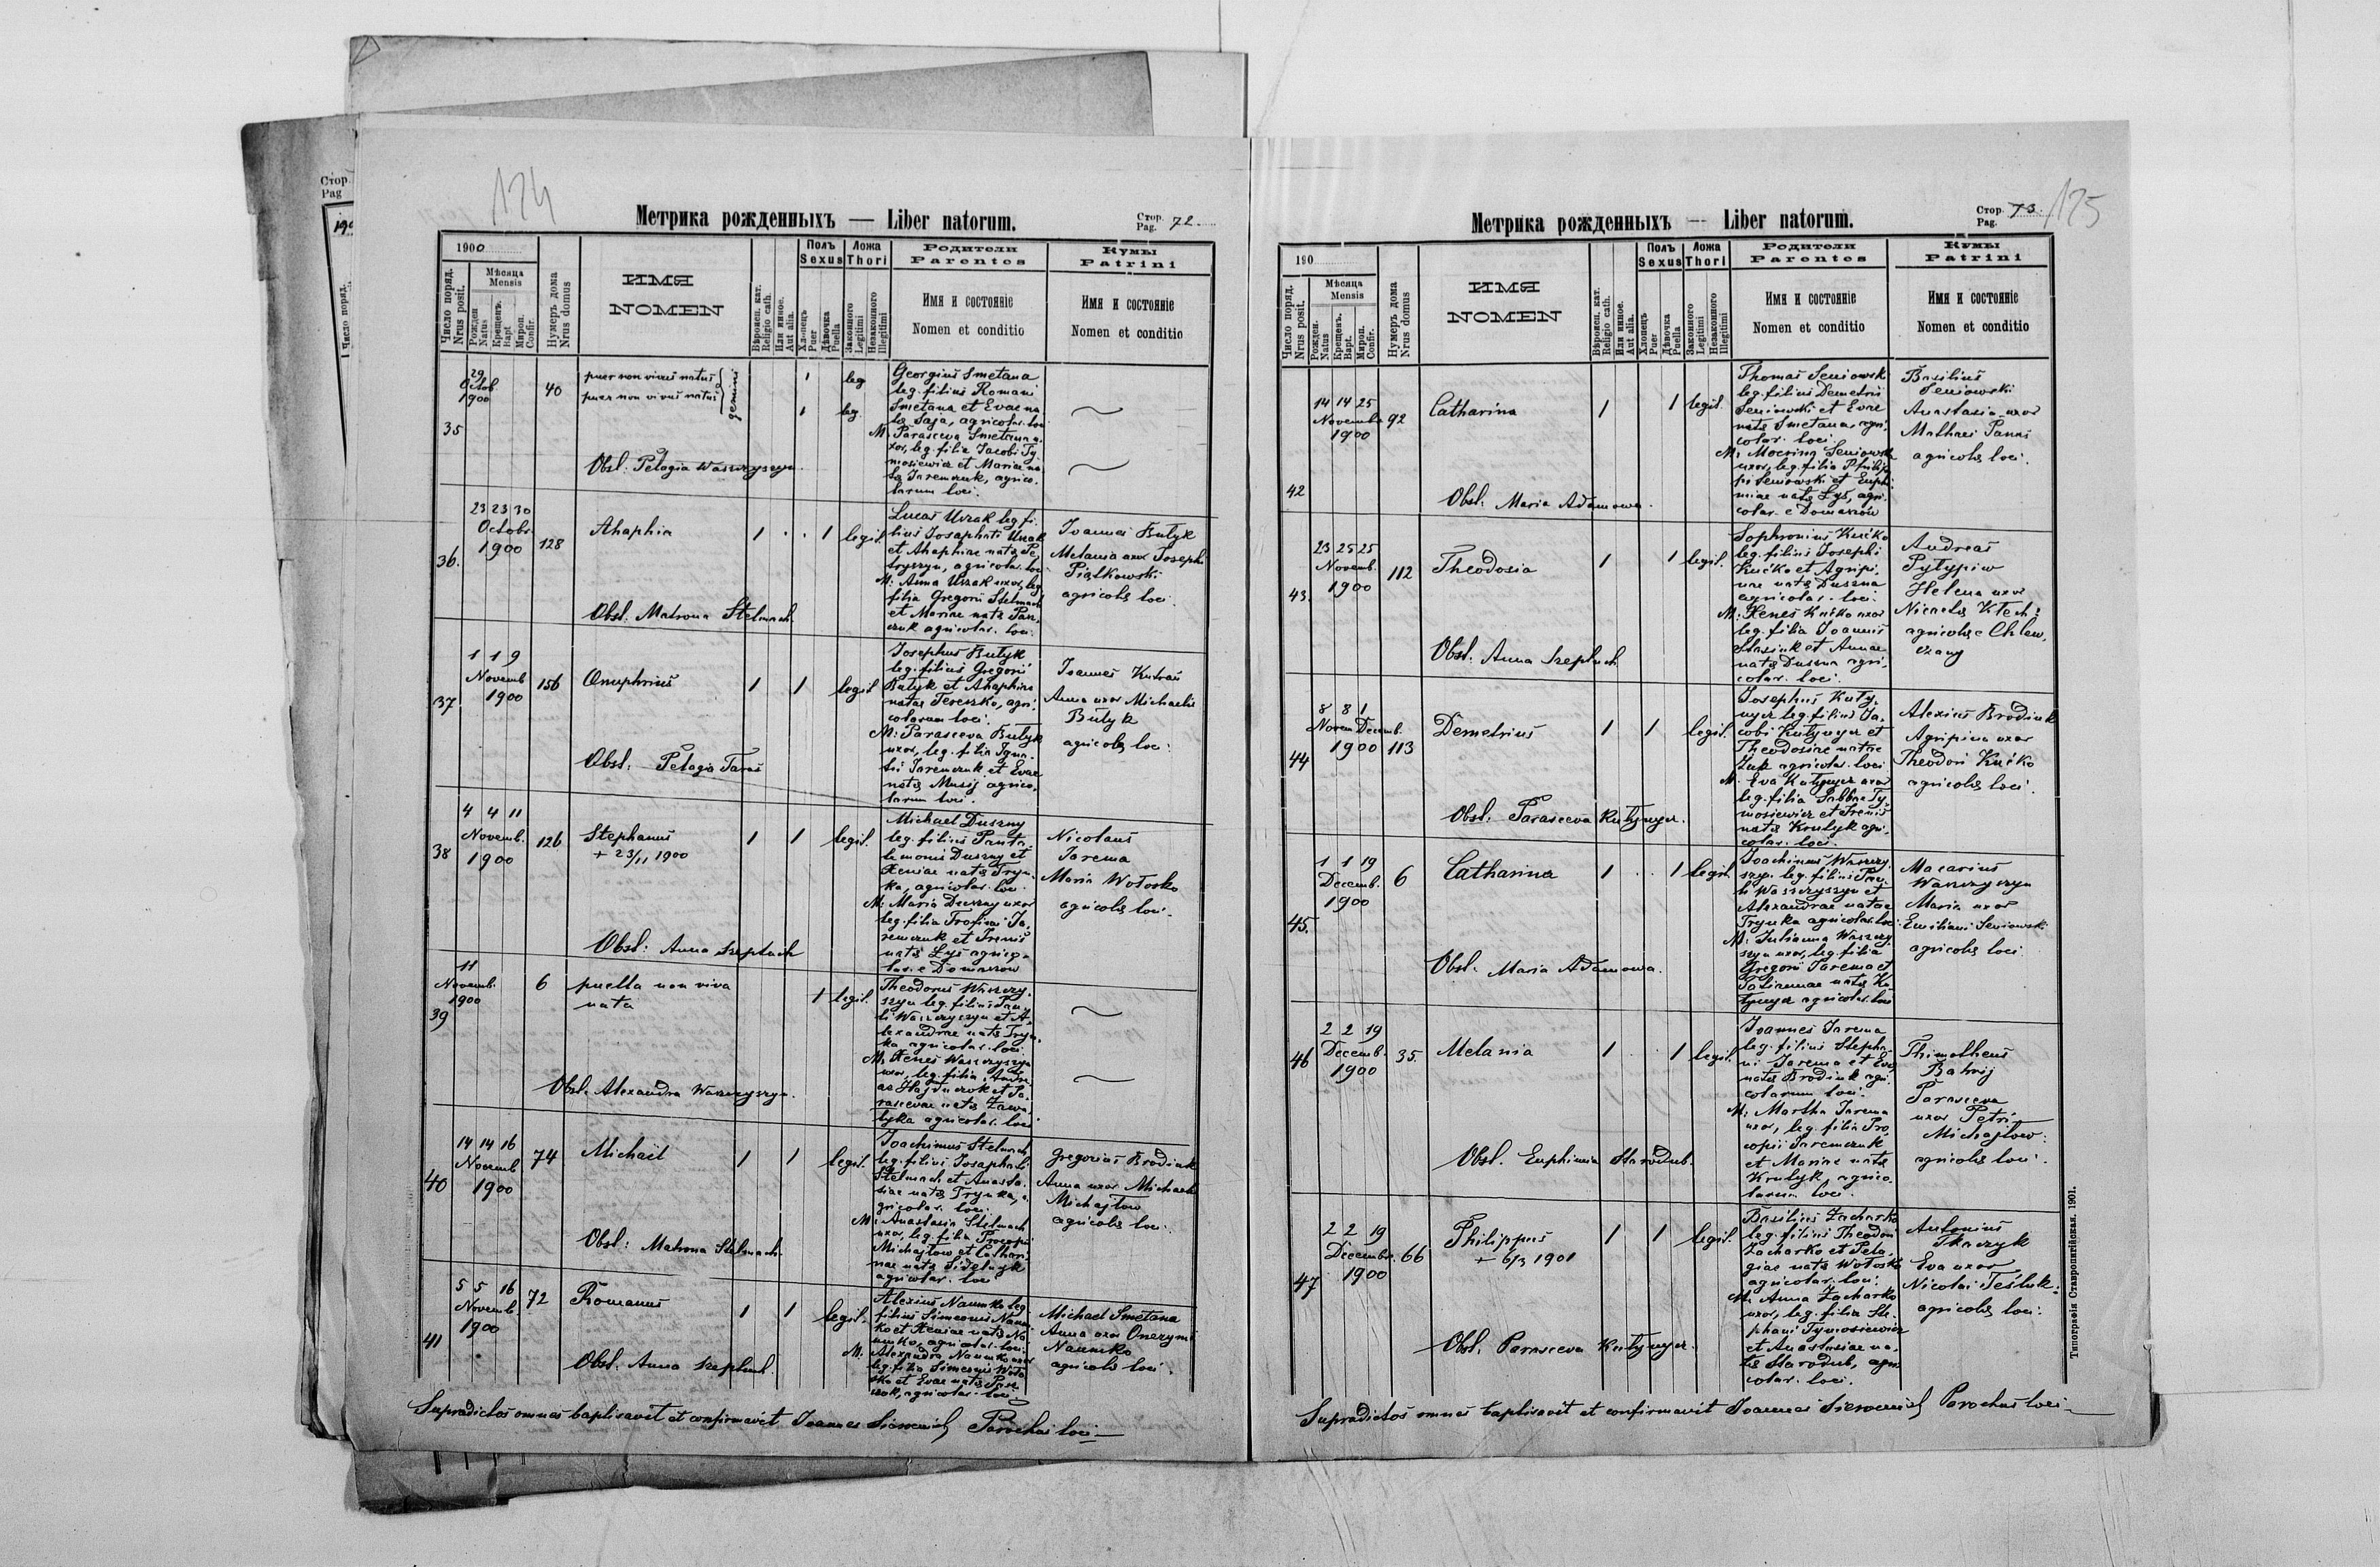 Стор.
Pag
190
Число поряд.
124
Метрика рожденныхъ — Liber natorum.
Стор. Pag. 72
1900
Число поряд. Nrus posit.
Мѣсяца Mensis
Рожден Natus
Крещенъ. Bapt.
Мироп. Confir.
Нумеръ дома Nrus domus
ИМЯ
NOMEN
Вѣроисп. кат. Religio cath.
Или иное. Aut alia.
Полъ Sexus
Хлопецъ Puer
Дѣвочка Puella
Ложа Thori
Законного Legitimi
Незаконного Illegitimi
Родители
Parentes
Имя и состояніе
Nomen et conditio
Кумы
Patrini
Имя и состояніе
Nomen et conditio
35
29
Octob
1900
40
puer non vivus natus
puer non vivus natus
gemini
1 leg
1 leg.
Georgius Smetana
leg. filius Romani
Smetana et Evae na
tae Saja, agricolar. loci
M. Parasceva Smetana u.
xor, leg. filia Jacobi Ty
mosiewicz et Mariae na
tae Jaremczuk, agrico.
larum loci.
Obst. Pelagia Waszczyszyn.
36.
23 23 30
Octobr
1900
128
Ahaphia
1 . . 1 legit.
Lucas Uszak leg. fi.
lius Josaphati Uszak
et Ahaphiae natae Pe,
tryszyn, agricolar. loci
M: Anna Uszak uxor, leg
filia Gregorii Stelmach
et Mariae natae Pan,
czuk agricolar. loci.
Joannes Butyk
Melania uxor Josephi
Piątkowski
agricolae loci.
Obst. Matrona Stelmach.
37
1 1 9
Novemb
1900
156
Onuphrius
1 1 legit
Josephus Butyk
leg. filius Gregorii
Butyk et Ahaphiae
natae Tereszko, agri,
colarum loci.
M: Parasceva Butyk
uxor, leg. filia Igna
tii Jaremczuk et Evae
natae Musij agrico,
larum loci.
Joannes Kutras
Anna uxor Michaelis
Butyk
agricolae loci.
Obst. Pelagia Taras
38
4 4 11
Novemb.
1900
126
Stephanus
+ 23/11 1900
1 1 legit.
Michael Duszny
leg. filius Panta
lemonis Duszny et
Xeniae natae Tryn.
ka, agricolar. loci.
M: Maria Duszny uxor
leg. filia Trofimi Ja,
remczuk et Irenis
natae Lys agrico
lar. e Domaszow
Nicolaus
Jarema
Maria Wołosko
agricolae loci.
Obst: Anna Szeptach
39
11
Novemb.
1900
6
puella non viva
nata
1 legit.
Theodorus Waszczy,
szyn leg. filius Pau
li Waszczyszyn et A,
lexandrae natae Tryn,
ka agricolar. loci.
M: Xenes Waszczyszyn
uxor, leg. filia Andre
ae Hajduczok et Pa,
rascevae natae Zawa,
lyka agricolar. loci
Obst. Alexandra Waszczyszyn.
40
14 14 16
Novemb
1900
74
Michael
1 1 legit.
Joachimus Stelmach
leg. filius Josaphati
Stelmach et Anasta.
siae natae Trynka, a
gricolar. loci.
M: Anastasia Stelmach
uxor, leg. filia Procopii
Michajłow et Cathari
nae natae Sidelnyk
agricolar. loci
Gregorius Brodiuk
Anna uxor Michaelis
Michajłow
agricolae loci.
Obst: Matrona Stelmach.
41
5 5 16
Novemb.
1900
72
Romanus
1 1 legit.
Alexius Naumko leg
filius Simeonis Naum
ko et Xeniae natae Na
umko, agricolar. loci.
M. Alexandra Naumko uxor
leg. filia Simeonis Woło
sko et Evae natae Pan
czuk, agricolar. loci
Michael Smetana
Anna uxor Onezymi
Naumko
agricolae loci.
Obst. Anna Szeptach.
Supradictos omnes baptisavit et confirmavit Joannes Parochus loci
Метрика рожденныхъ — Liber natorum.
Стор. Pag. 73.
125
190
Число поряд. Nrus posit.
Мѣсяца Mensis
Рожден. Natus
Крещенъ. Bapt.
Мироп. Confir.
Нумеръ дома Nrus domus
ИМЯ
NOMEN
Вѣроисп. кат. Religio cath.
Или иное. Aut alia.
Полъ Sexus
Хлопецъ Puer
Дѣвочка Puella
Ложа Thori
Законного Legitimi
Незаконного Illegitimi
Родители
Parentes
Имя и состояніе
Nomen et conditio
Кумы
Patrini
Имя и состояніе
Nomen et conditio
42
14 14 25
Novemb.
1900
92
Catharina
1 1 legit.
Thomas Seniowski
leg. filius Demetrii
Seniowski et Evae
natae Smetana, agri,
colar. loci.
M: Seniowska
uxor, leg. filia Philip
pi Seniowski et Euphe
miae natae Lys, agri.
colar. e Domaszów
Basilius
Seniowski
Anastasia uxor
Mathaei Panas
agricolae loci.
Obst: Maria Adamowa.
43.
23 25 25
Novemb.
1900
112
Theodosia
1 1 legit.
Sophronius Kućko
leg. filius Josephi
Kućko et Agripi,
nae natae Duszna
agricolar. loci.
M: Xenes Kućko uxor
leg. filia Joannis
Stasiuk et Annae
natae Duszna agri,
colar. loci.
Andreas
Pytypiw
Helena uxor
Nicolai Klech
agricolae e Chlew,
czany
Obst. Anna Szeptach
44
8 8 1
Novem Decemb.
1900
113
Demetrius
1 1 legit.
Josephus Kuty,
nyer leg. filius Ja,
cobi Kutynyer et
Theodosiae natae
Zuk agricolar. loci
M. Eva Kutynyer uxor
leg. filia Sabbae Ty,
mosiewicz et Irenis
natae Krutyk agri,
colar. loci.
Alexius Brodiuk
Agripina uxor
Theodori Kućko
agricolae loci.
Obst. Parasceva Kutynyer.
45.
1 1 19
Decemb.
1900
6
Catharina
1 . . 1 legit.
Joachimus Waszczy,
szyn leg. filius Pau,
li Waszczyszyn et
Alexandrae natae
Trynka agricolar. loci
M: Julianna Waszczy
szyn uxor, leg. filia
Gregorii Jarema et
natae Ku
tynyer agricolar. loci
Macarius
Waszczyszyn
Maria uxor
Emiliani Seniowski
agricolae loci
Obst. Maria Adamowa.
46
2 2 19
Decemb.
1900
35.
Melania
1 . 1 legit.
Joannes Jarema
leg. filius Stepha
ni Jarema et Evae
natae Brodiuk agri
colarum loci.
M: Martha Jarema
uxor, leg. filia Pro
copii Jaremczuk
et Mariae natae
Krutyk, agrico
larum loci.
Thimotheus
Batruij
Parasceva
uxor Petri
Michajłow
agricolae loci.
Obst. Euphimia Starodub.
47
2 2 19
Decembr.
1900
66
Philippus
+ 6/3 1901
1 1 legit.
Basilius Zacharko
leg. filius Theodori
Zacharko et Pela,
giae natae Wołosko
agricolar. loci.
M: Anna Zacharko
uxor, leg. filia Ste,
phani Tymosiewicz
et Anastasiae na,
tae Starodub, agri
colar. loci.
Antonius
Tkaczyk
Eva uxor
Nicolai Tesluk
agricolae loci.
Obst. Parasceva Kutynyer.
Supradictos omnes baptisavit et confirmavit Joannes Parochus loci
Типографія Ставропигійская. 1901.